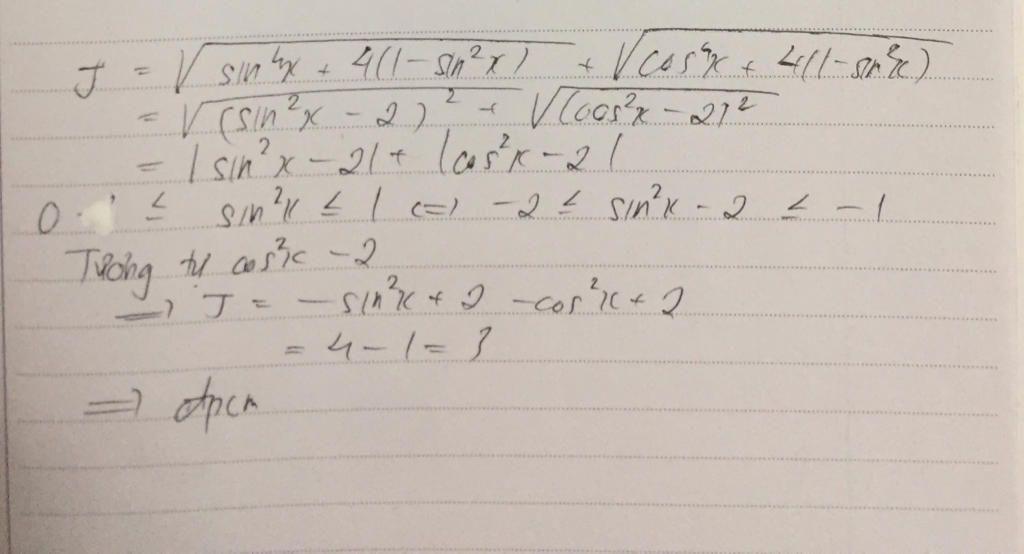 J = √(sin⁴x + 4(1-sin²x)) + √(cos⁴x + 4(1-sin²x))
= √((sin²x - 2)²) + √((cos²x - 2)²)
= |sin²x - 2| + |cos²x - 2|
0 ≤ sin²x ≤ 1 <=> -2 ≤ sin²x - 2 ≤ -1
Tương tự cos²x - 2
=> J = -sin²x + 2 - cos²x + 2
= 4 - 1 = 3
=> đpcm